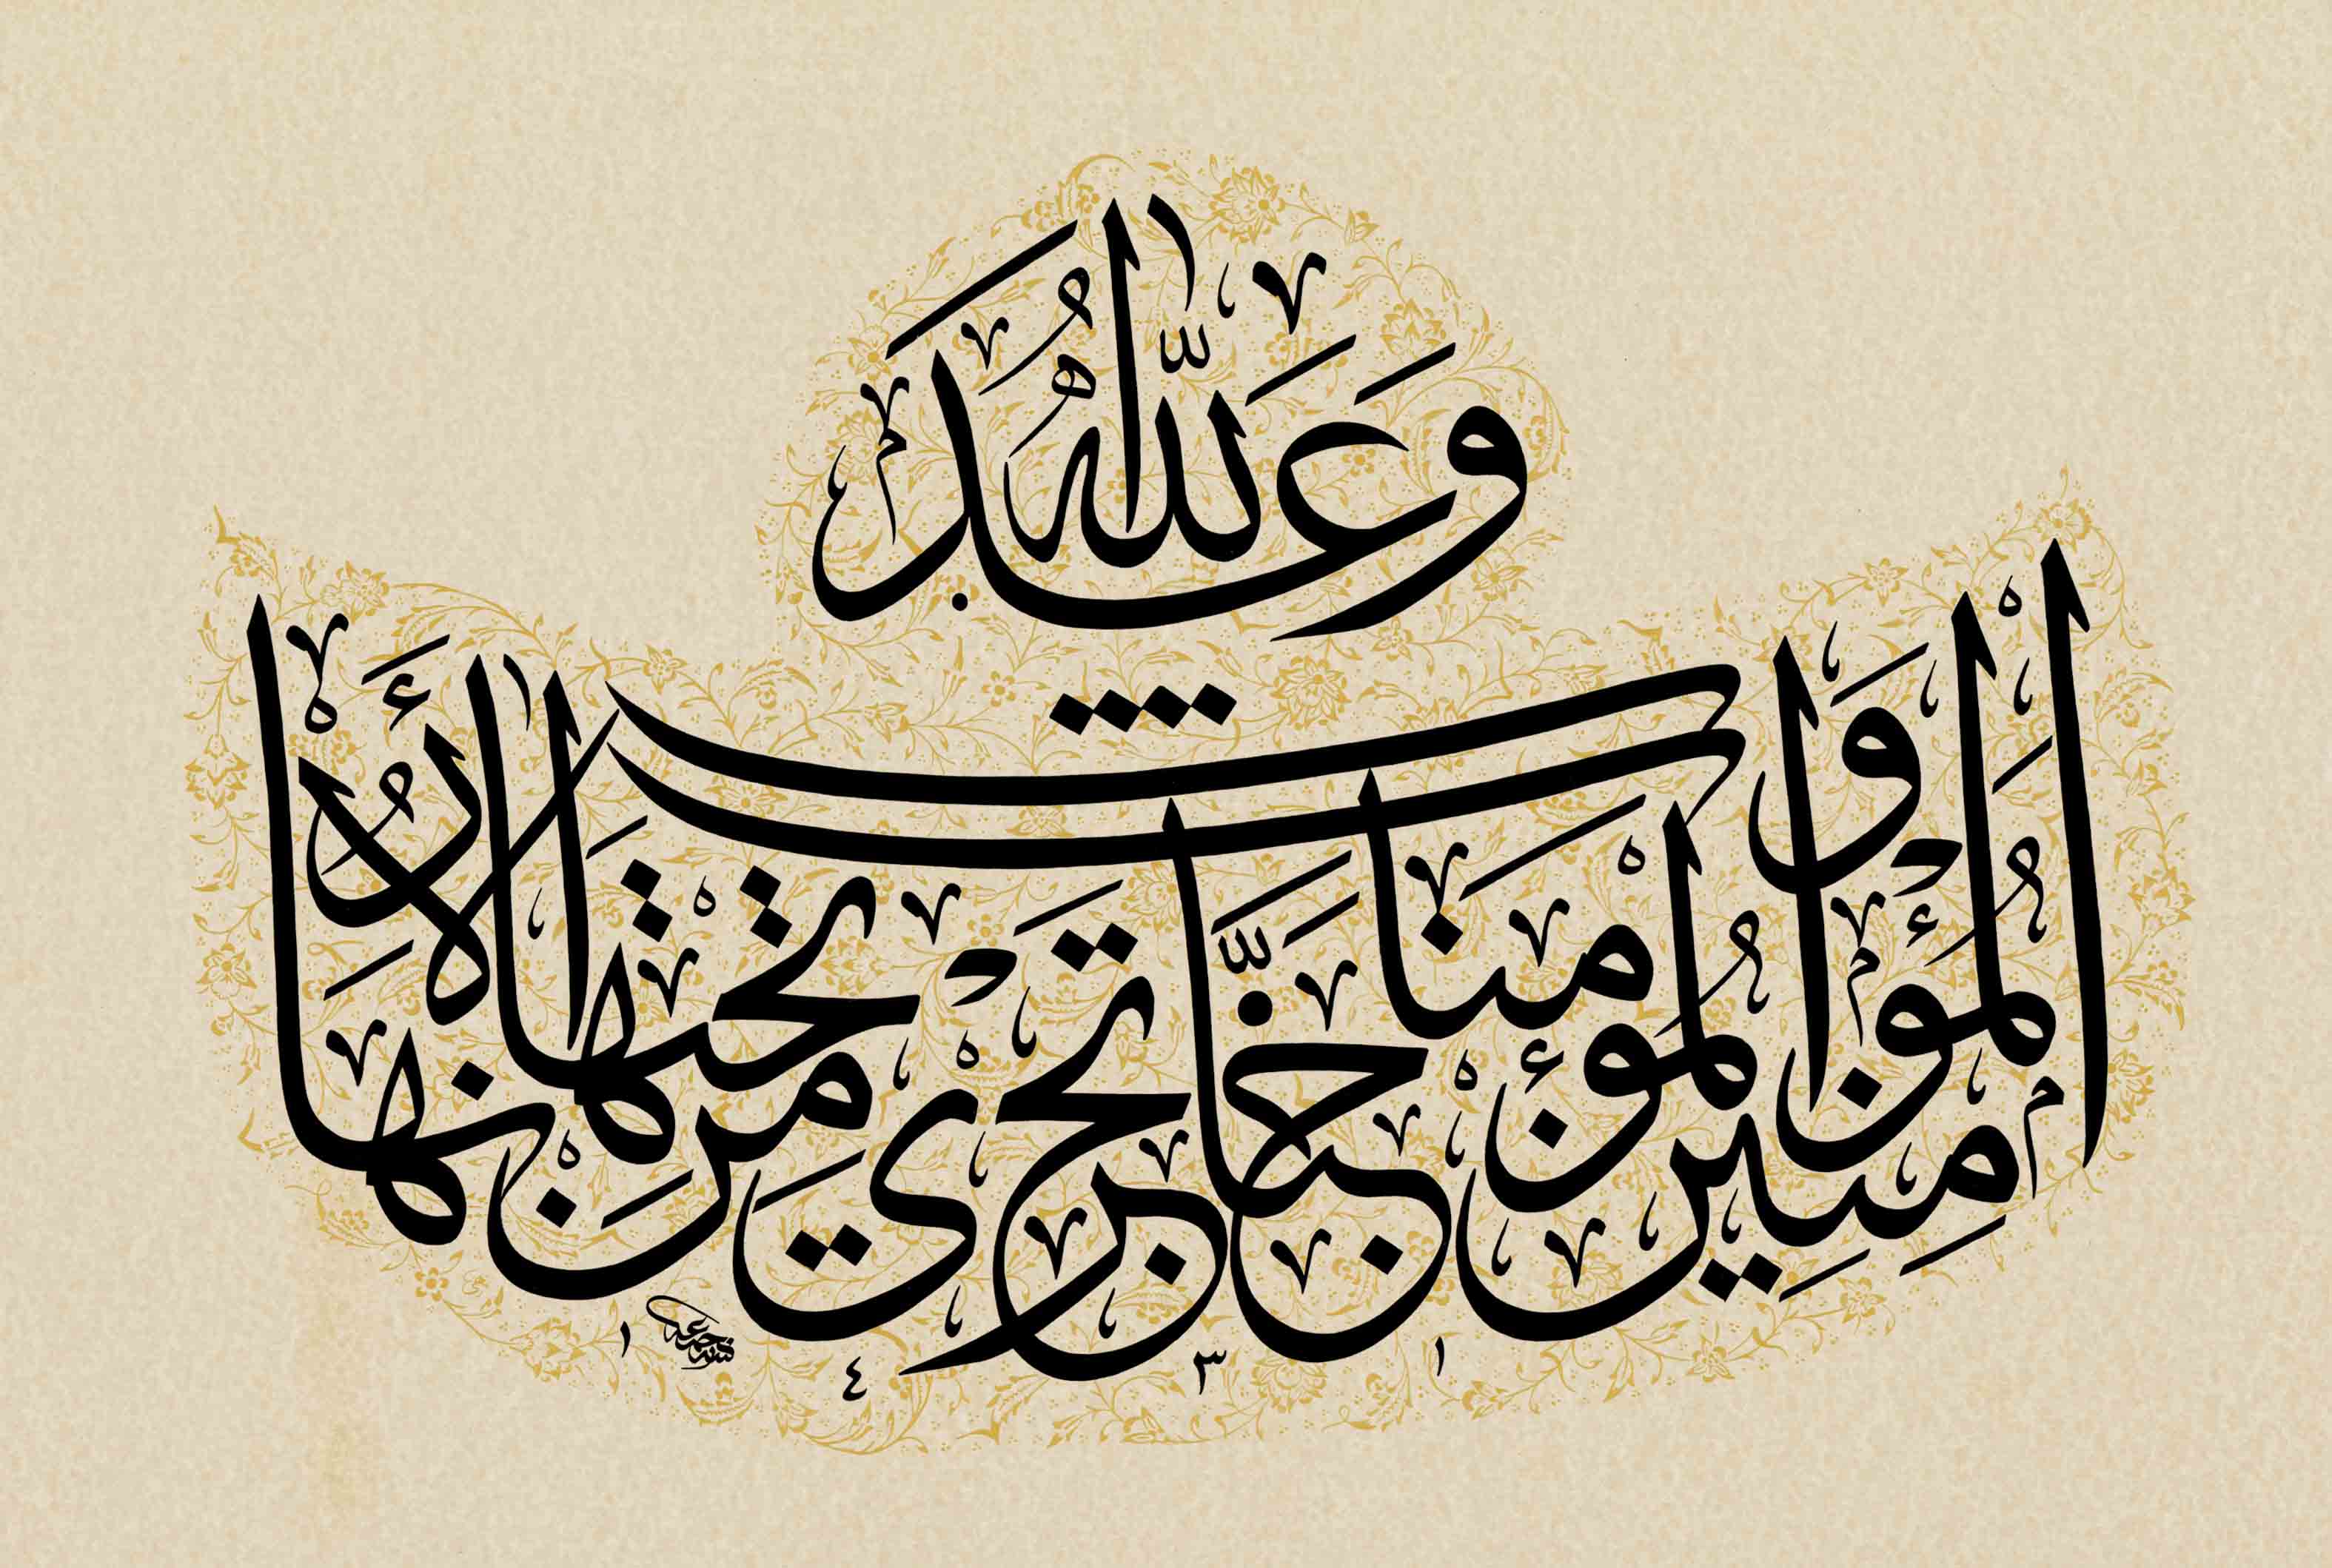 وَعَدَ اللّٰهُ
الْمُؤْمِنِينَ وَالْمُؤْمِنَاتِ جَنَّاتٍ تَجْرِي مِنْ تَحْتِهَا الْأَنْهَارُ
١ ٤ ٣ ١